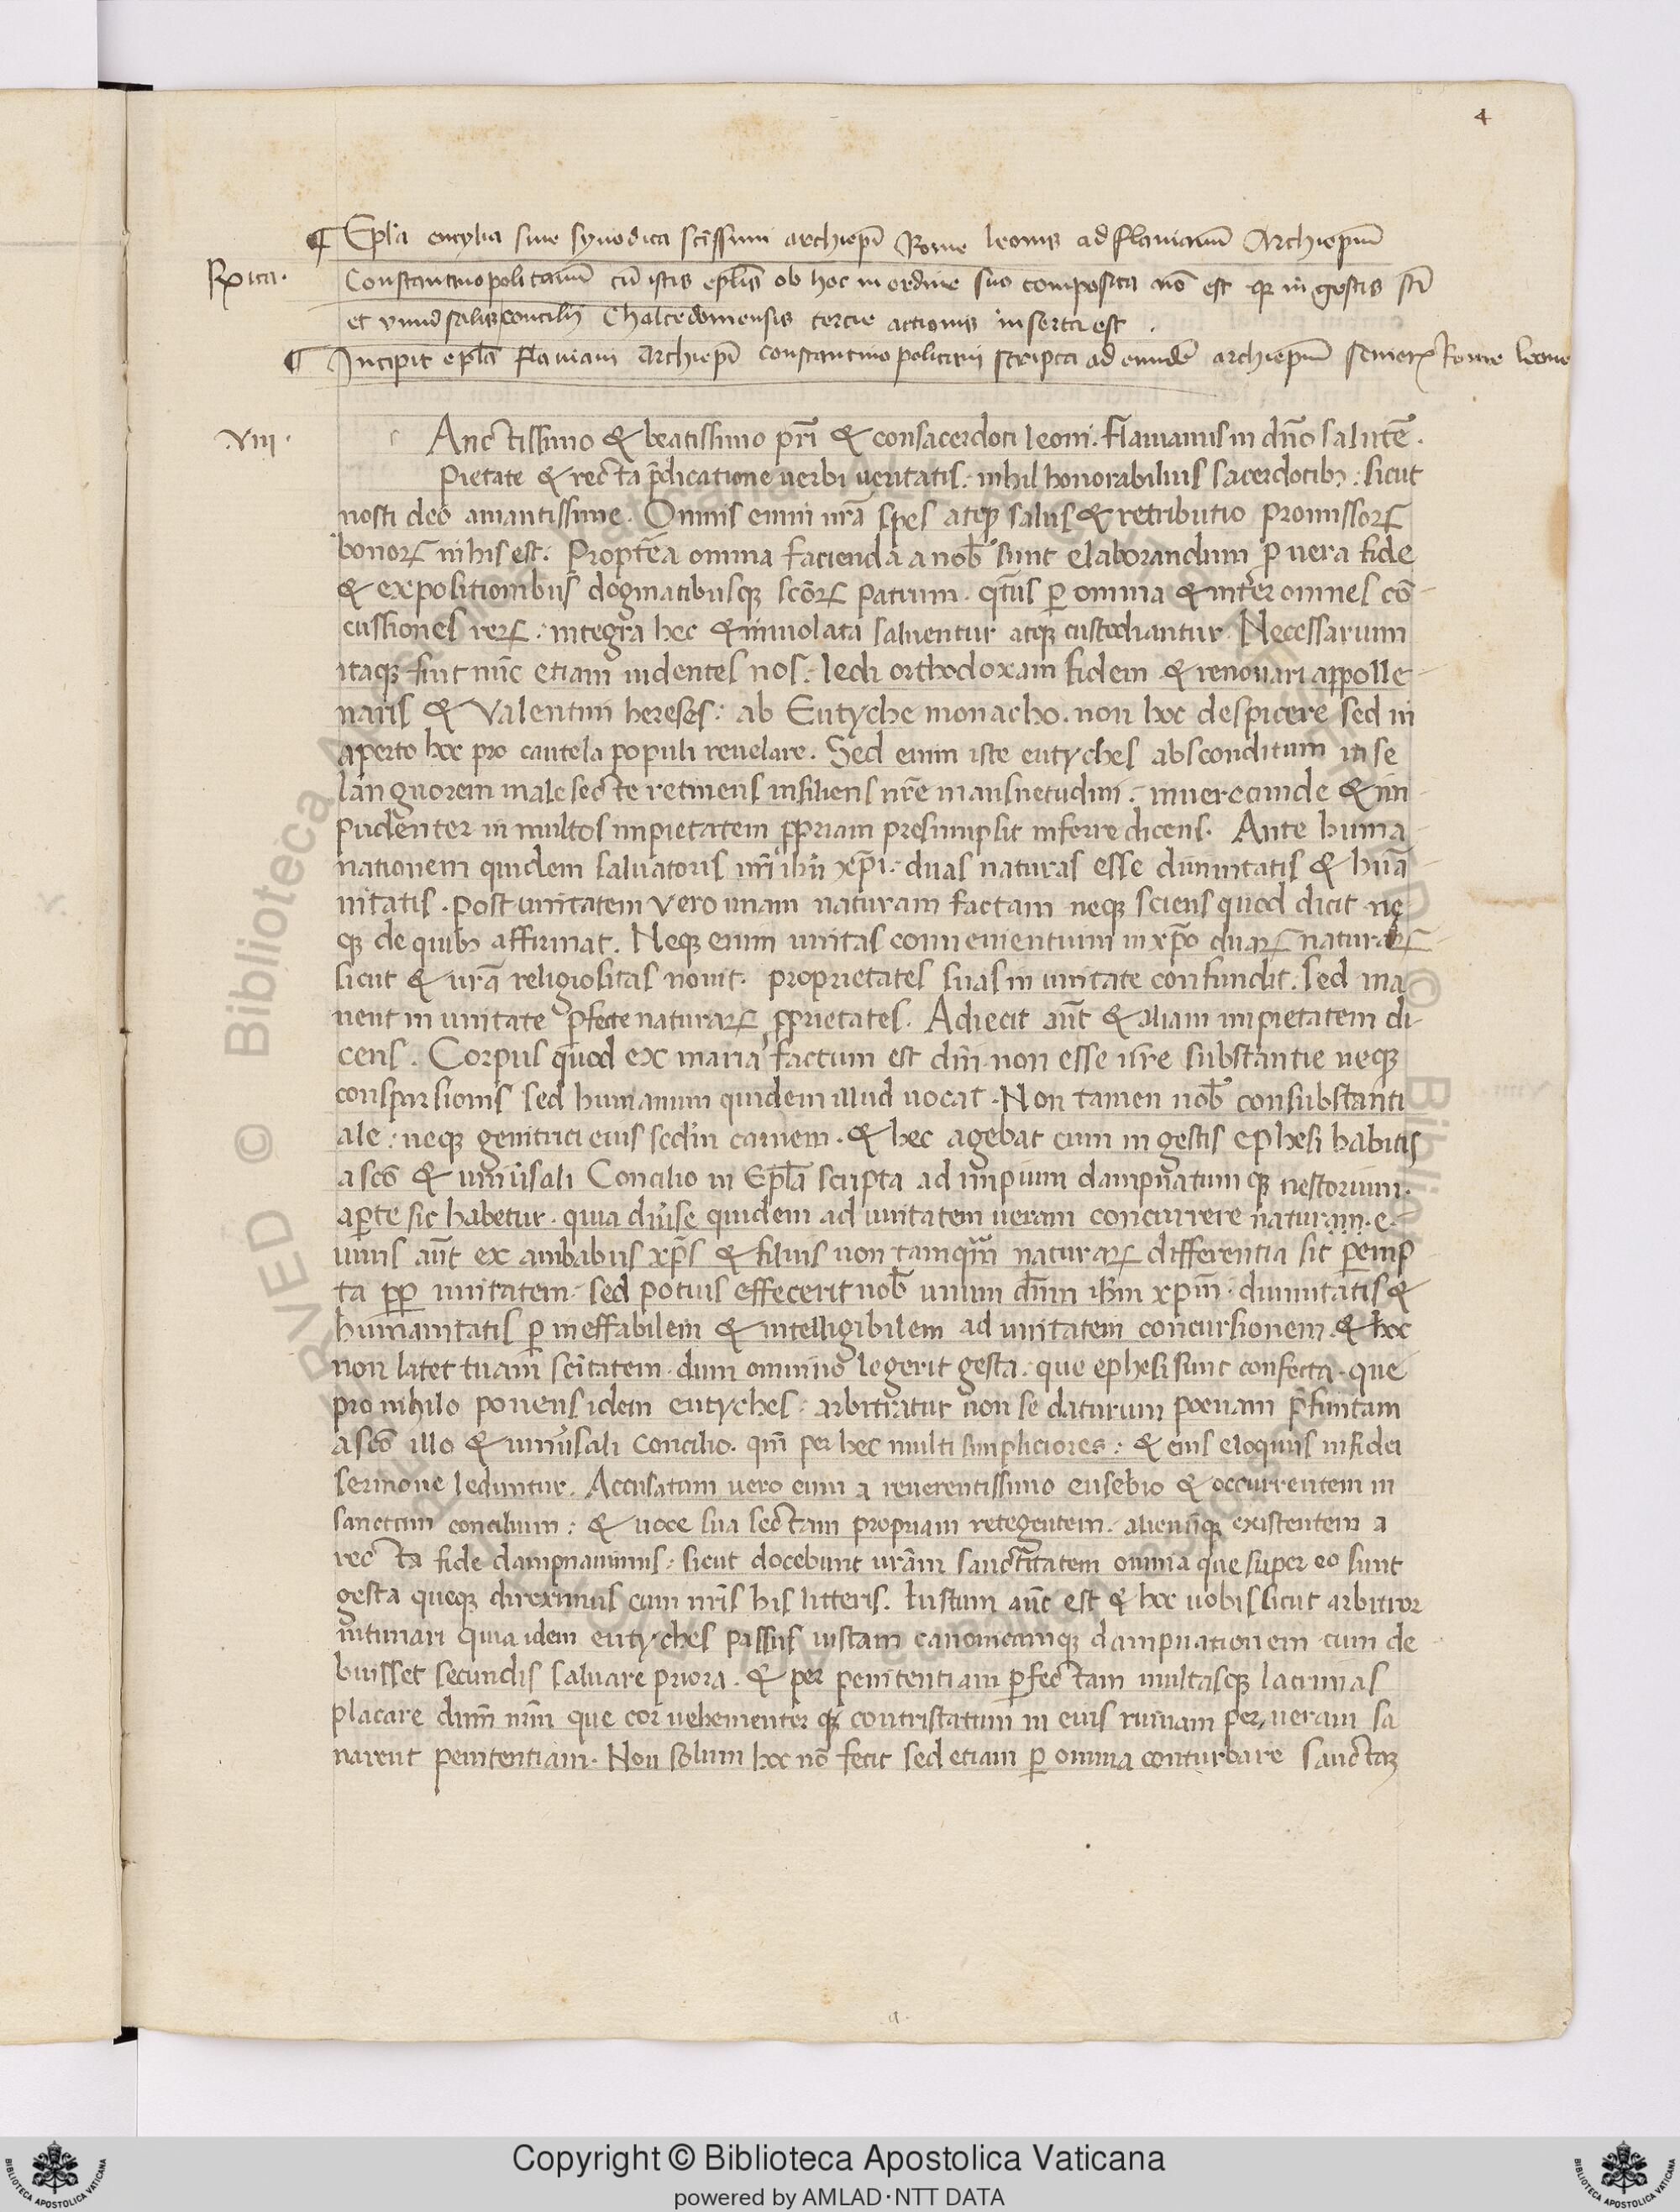 4
¶ Epl̄a encylia siue synodica sc̄issimi archiep̄i Rome leonis ad flauianū Archiepm̄
Rx ita· Constantinopolitanū cū istis epl̄is ob hoc in ordine suo composita nō est qr in gestis sc̄i
et vniuersalis concilij Chalcedonensis tercie actionis inserta est .
¶ Incipit epl̄a flauiani Archiep̄i constantinopolitani scripta ad eundē archiepm̄ Rome leone
viii· Anctissimo & beatissimo pr̄i & consacerdoti leoni. Flauianus in dn̄o salutē.
Pietate & recta p̄dicatione uerbi ueritatis: nihil honorabilius sacerdotibꝫ: sicut
nosti deo amantissime. Omnis enim nr̄a spes atqꝫ salus & retributio promissorꝝ
bonorꝝ in his est. Propterea omnia facienda a nob̄ sunt elaborandum ꝑ uera fide
& expositionibus dogmatibusqꝫ sc̄orꝝ patrum. qt̄us ꝑ omnia & inter omnes cō
cussiones rerꝝ: integra hec & inuiolata saluentur atqꝫ custodiantur. Necessarium
itaqꝫ fuit nūc etiam uidentes nos: ledi orthodoxam fidem & renouari appolle
naris & Valentini hereses: ab Eutyche monacho. non hoc despicere sed in
aperto hoc pro cautela populi reuelare. Sed enim iste eutyches absconditum in se
languorem male secte retinens insiliens nr̄e mansuetudini: inuerecunde & im
pudenter in multos impietatem ꝓpriam presumpsit inferre dicens. Ante huma
nationem quidem saluatoris nr̄i ihū xp̄i: duas naturas esse diuinitatis & huā
nitatis. post unitatem vero unam naturam factam neqꝫ sciens quod dicit ne
qꝫ de quibꝫ affirmat. Neqꝫ enim unitas conuenientium in xp̄o duarꝝ naturarꝝ
sicut & ur̄a religiositas nouit. proprietates suas in unitate confundit. sed ma
nent in unitate ꝑfecte naturarꝝ ꝓprietates. Adiecit aūt & aliam impietatem di
cens. Corpus quod ex maria factum est dn̄i non esse nr̄e substantie neqꝫ
conspersionis sed humanum quidem illud uocat. Non tamen nob̄ consubstanti
ale: neqꝫ genitrici eius sed'm carnem. & hec agebat cum in gestis ephesi habitis
a sc̄o & uniūsali Concilio in Epl̄a scripta ad impium dampnatumqꝫ nestorium.
aꝑte sic habetur. quia diūse quidem ad unitatem ueram concurrere naturam. e
unus aūt ex ambabus xp̄s & filius non tamqm̄ naturarꝝ differentia sit ꝑemp
ta ꝓp unitatem. sed potius effecerit nob̄ unum dn̄m ihm̄ xpm̄. diuinitatis &
humanitatis ꝑ ineffabilem & intelligibilem ad unitatem concursionem. & hoc
non latet tuam sc̄itatem. dum omnino legerit gesta. que ephesi sunt confecta. que
pro nihilo ponens idem eutyches: arbitratur non se daturum poenam p̄finitam
a sc̄o illo & uniūsali concilio. qm̄ per hec multi simpliciores: & eius eloquiis in fidei
sermone leduntur. Accusatum uero eum a reuerentissimo eusebio & occurrentem in
sanctum concilium: & uoce sua sectam propriam retegentem. alienūqꝫ existentem a
recta fide dampnauimus: sicut docebunt ur̄am sanctitatem omnia que super eo sunt
gesta queqꝫ direximus cum nr̄is his litteris. Iustum aūt est & hoc uobis sicut arbitror
intimari quia idem eutyches passus iustam canonicamqꝫ dampnationem cum de
buisset secundis saluare priora. & per penitentiam ꝑfectam multasqꝫ lacrimas
placare dn̄m nr̄m que cor uehementer qꝫ contristatum in eius ruinam per ueram sa
narent penitentiam. Non solum hoc nō fecit sed etiam ꝑ omnia conturbare sanctaꝫ
a·
© Biblioteca Apostolica Vaticana
Copyright © Biblioteca Apostolica Vaticana
powered by AMLAD·NTT DATA